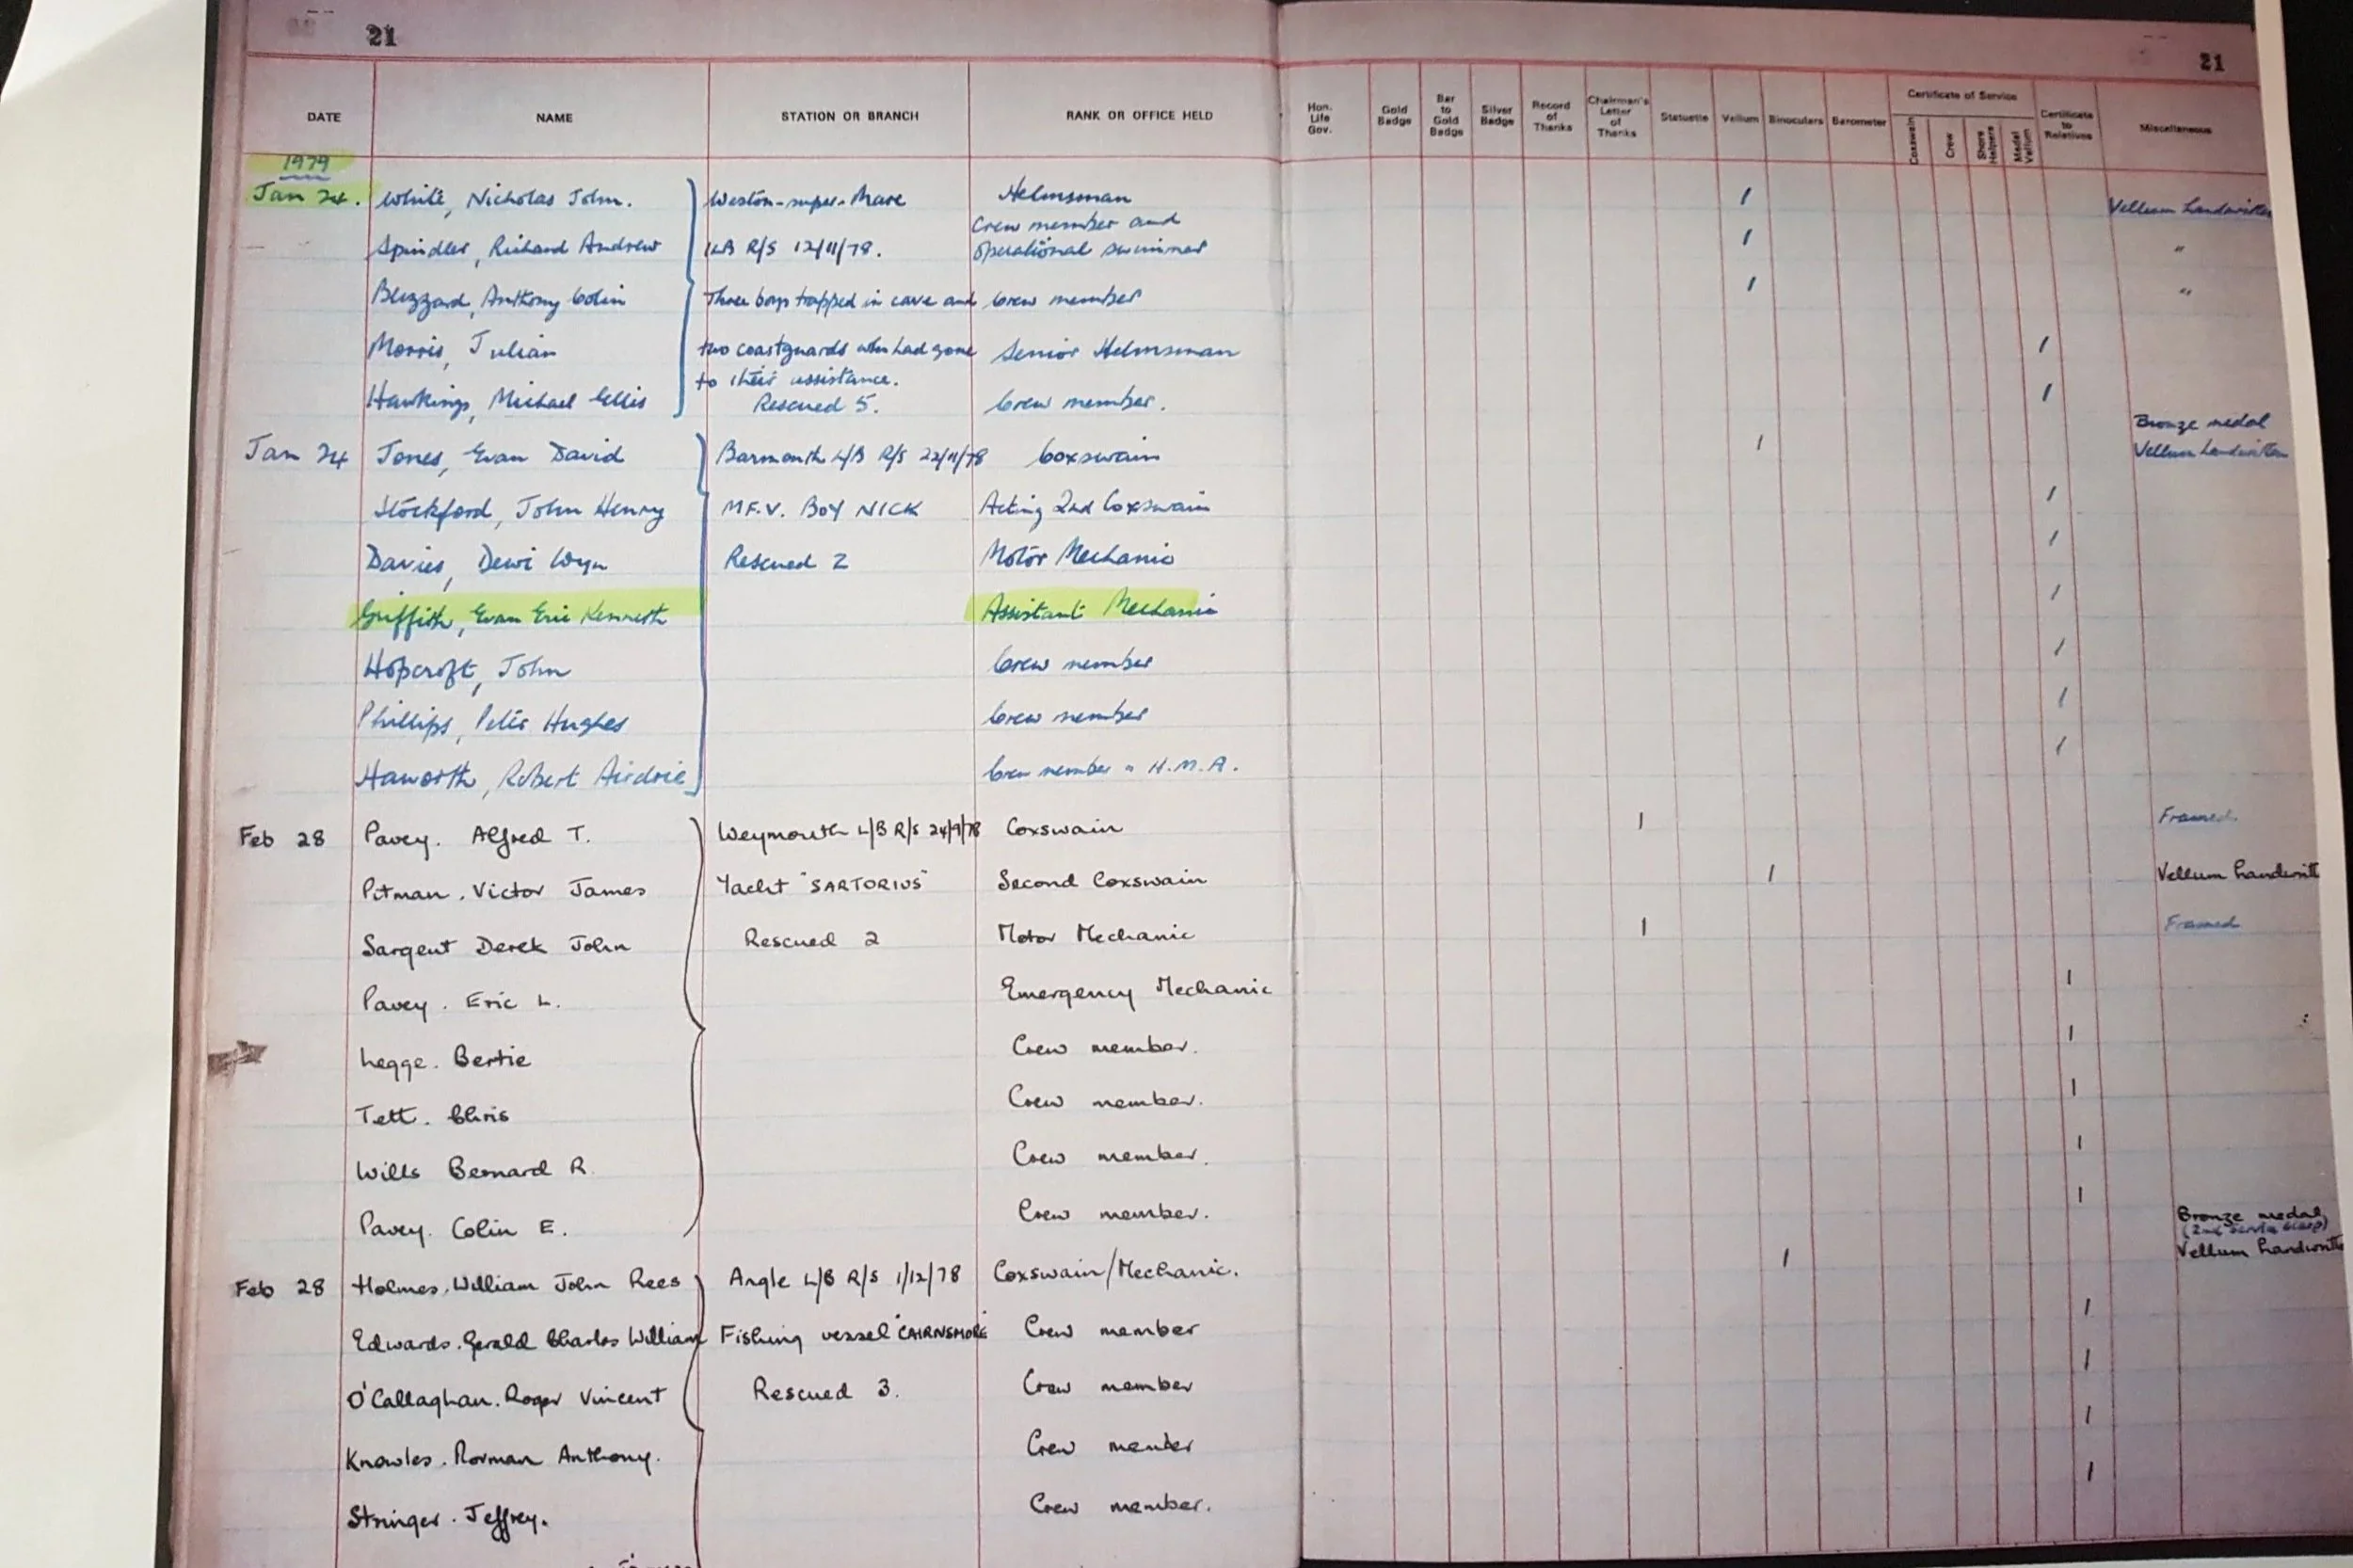 21
21
DATE NAME STATION OR BRANCH RANK OR OFFICE HELD Hon. Life Gov. Gold Badge Bar to Gold Badge Silver Badge Record of Thanks Chairman's Letter of Thanks Statuette Vellum Binoculars Barometer Certificate of Service Coxswain Crew Shore Helpers Medal Vellum Certificate to Relatives Miscellaneous
1979
Jan 24. White, Nicholas John. Weston-super-Mare Helmsman 1 Vellum handwritten
Crew member and
Spindler, Richard Andrew ILB R/S 12/11/78. operational swimmer 1 "
Blizzard, Anthony Colin Three boys trapped in cave and Crew member 1 "
Morris, Julian two coastguards who had gone Senior Helmsman 1
to their assistance.
Hawkings, Michael Ellis Rescued 5. Crew member. 1
Bronze medal
Jan 24 Jones, Evan David Barmouth L/B R/S 22/11/78 Coxswain 1 Vellum handwritten
Stockford, John Henry MF.V. BOY NICK Acting 2nd Coxswain 1
Davies, Dewi Wyn Rescued 2 Motor Mechanic 1
Griffith, Evan Eric Kenneth Assistant Mechanic 1
Hopcroft, John Crew member 1
Phillips, Peter Hughes Crew member 1
Haworth, Robert Airdrie Crew member " H.M.A. 1
Feb 28 Pavey. Alfred T. Weymouth L/B R/S 24/9/78 Coxswain 1 Framed.
Pitman. Victor James Yacht "SARTORIUS" Second Coxswain 1 Vellum handwritt
Sargent Derek John Rescued 2 Motor Mechanic 1 Framed
Pavey. Eric L. Emergency Mechanic 1
Legge. Bertie Crew member. 1
Tett. Chris Crew member. 1
Wills Bernard R. Crew member. 1
Pavey. Colin E. Crew member. 1
Bronze medal
(2nd Service Clasp)
Feb 28 Holmes. William John Rees Angle L/B R/S 1/12/78 Coxswain/Mechanic. 1 Vellum handwritte
Edwards. Gerald Charles William Fishing vessel "CAIRNSMORE" Crew member 1
O'Callaghan. Roger Vincent Rescued 3. Crew member 1
Knowles. Norman Anthony. Crew member 1
Stringer. Jeffrey. Crew member. 1